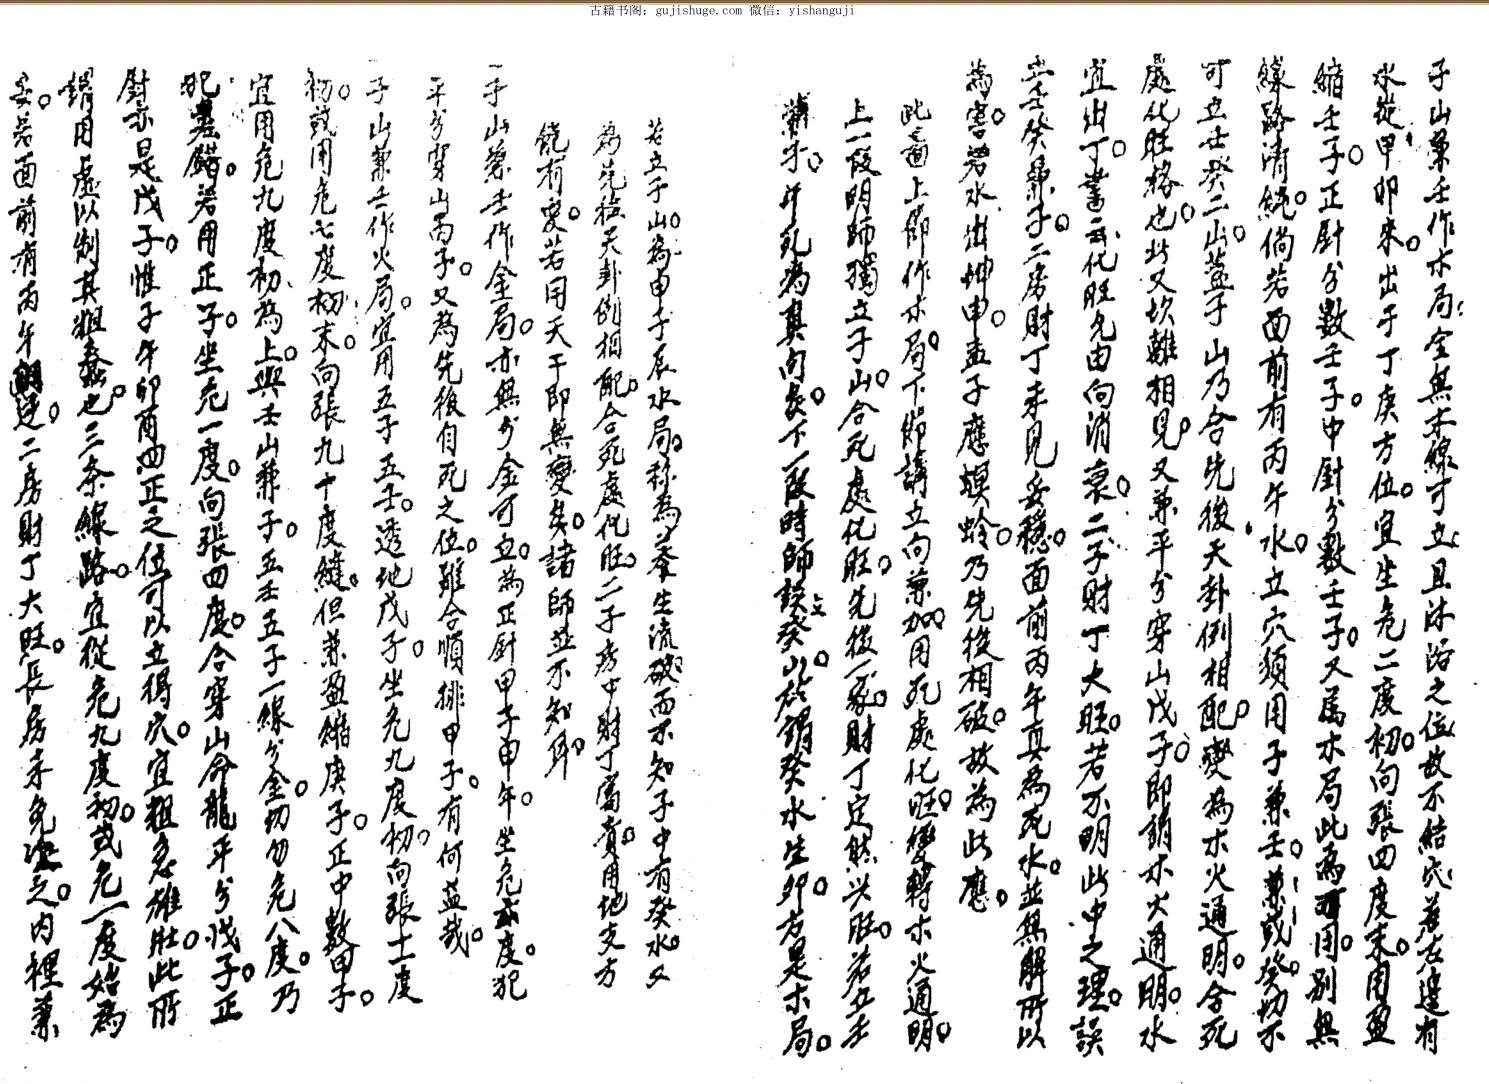 古籍书阁：gujishuge.com 微信：yishanguji
子山兼壬作木局全無木線可立且沐浴之位故不結穴若左邊有
水從甲卯來出于丁庚方位宜坐危二度初向張四度末用盈
縮壬子正針分數壬子中針分數壬子又屬木局此為可用別無
線路清純倘若面前有丙午水立穴須用子兼壬兼或癸切不
可立壬癸二山蓋子山乃合先後天卦例相配變為木火通明合死
處化旺格也此又坎離相見又兼平分穿山戊子即謂木火通明水
宜出丁畫云化旺允由向消衰二子財丁大旺若不明此中之理誤
立壬癸兼子二房財丁未見妥穩面前丙午真為死水並無解所以
為害若水出坤申孟子應螟蛉乃先後相破故為此應
此畫面上節作木局下節講立向兼加用死處化旺變轉木火通明
上一段明師獨立子山合死處化旺先後一家財丁定然興旺若立壬
兼子午死為真向矣下一段時師誤立癸山於謂癸水生卯方是木局
若立子山為申子辰水局移為養生流破而不知子中有癸水又
為先後天卦例相配合死處化旺二子房中財丁富貴用地支方
能有變若用天干即無變矣諸師並不知耳
子山兼壬作金局亦無分金可立為正針甲子申年坐危度犯
平分穿山丙子又為先後自死之位雖合順排甲子有何益哉
子山兼壬作火局宜用五子五壬透地戊子坐危九度初向張十一度
初或用危七度初末向張九十度縫但兼盈縮庚子正中數甲子
宜用危九度初為上與壬山兼子五壬五子一線分金切勿危八度乃
犯差錯若用正子坐危一度向張四度合穿山命龍平分戊子正
針亦是戊子惟子午卯酉四正之位可以立得穴宜粗急雄壯此所
謂用虛以制其粗蠢也三條線路宜從危九度初或危一度始為
妥若面前有丙午朝逆二房財丁大旺長房未免次之內裡兼